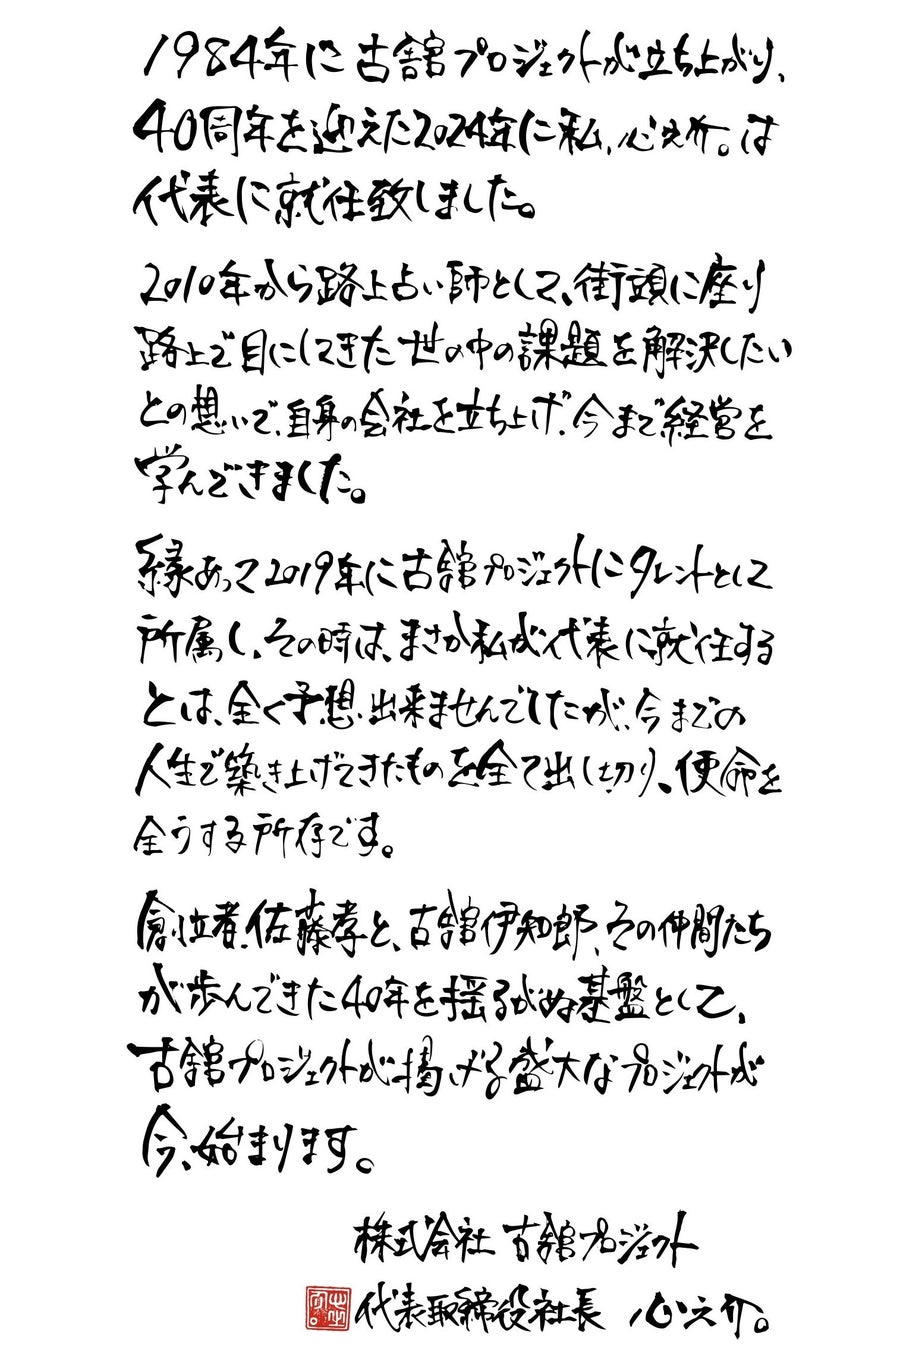 1984年に古舘プロジェクトが立ち上がり、
40周年を迎えた2024年に私、心之介。は
代表に就任致しました。
2010年から路上占い師として、街頭に座り
路上で目にしてきた世の中の課題を解決したい
との想いで、自身の会社を立ち上げ、今まで経営を
学んできました。
縁あって2019年に古舘プロジェクトにタレントとして
所属し、その時は、まさか私が代表に就任する
とは、全く予想出来ませんでしたが、今までの
人生で築き上げてきたものを全て出し切り、使命を
全うする所存です。
創立者、佐藤孝と、古舘伊知郎、その仲間たち
が歩んできた40年を揺るがぬ基盤として、
古舘プロジェクトが掲げる盛大なプロジェクトが
今、始まります。
株式会社 古舘プロジェクト
代表取締役社長 心之介。